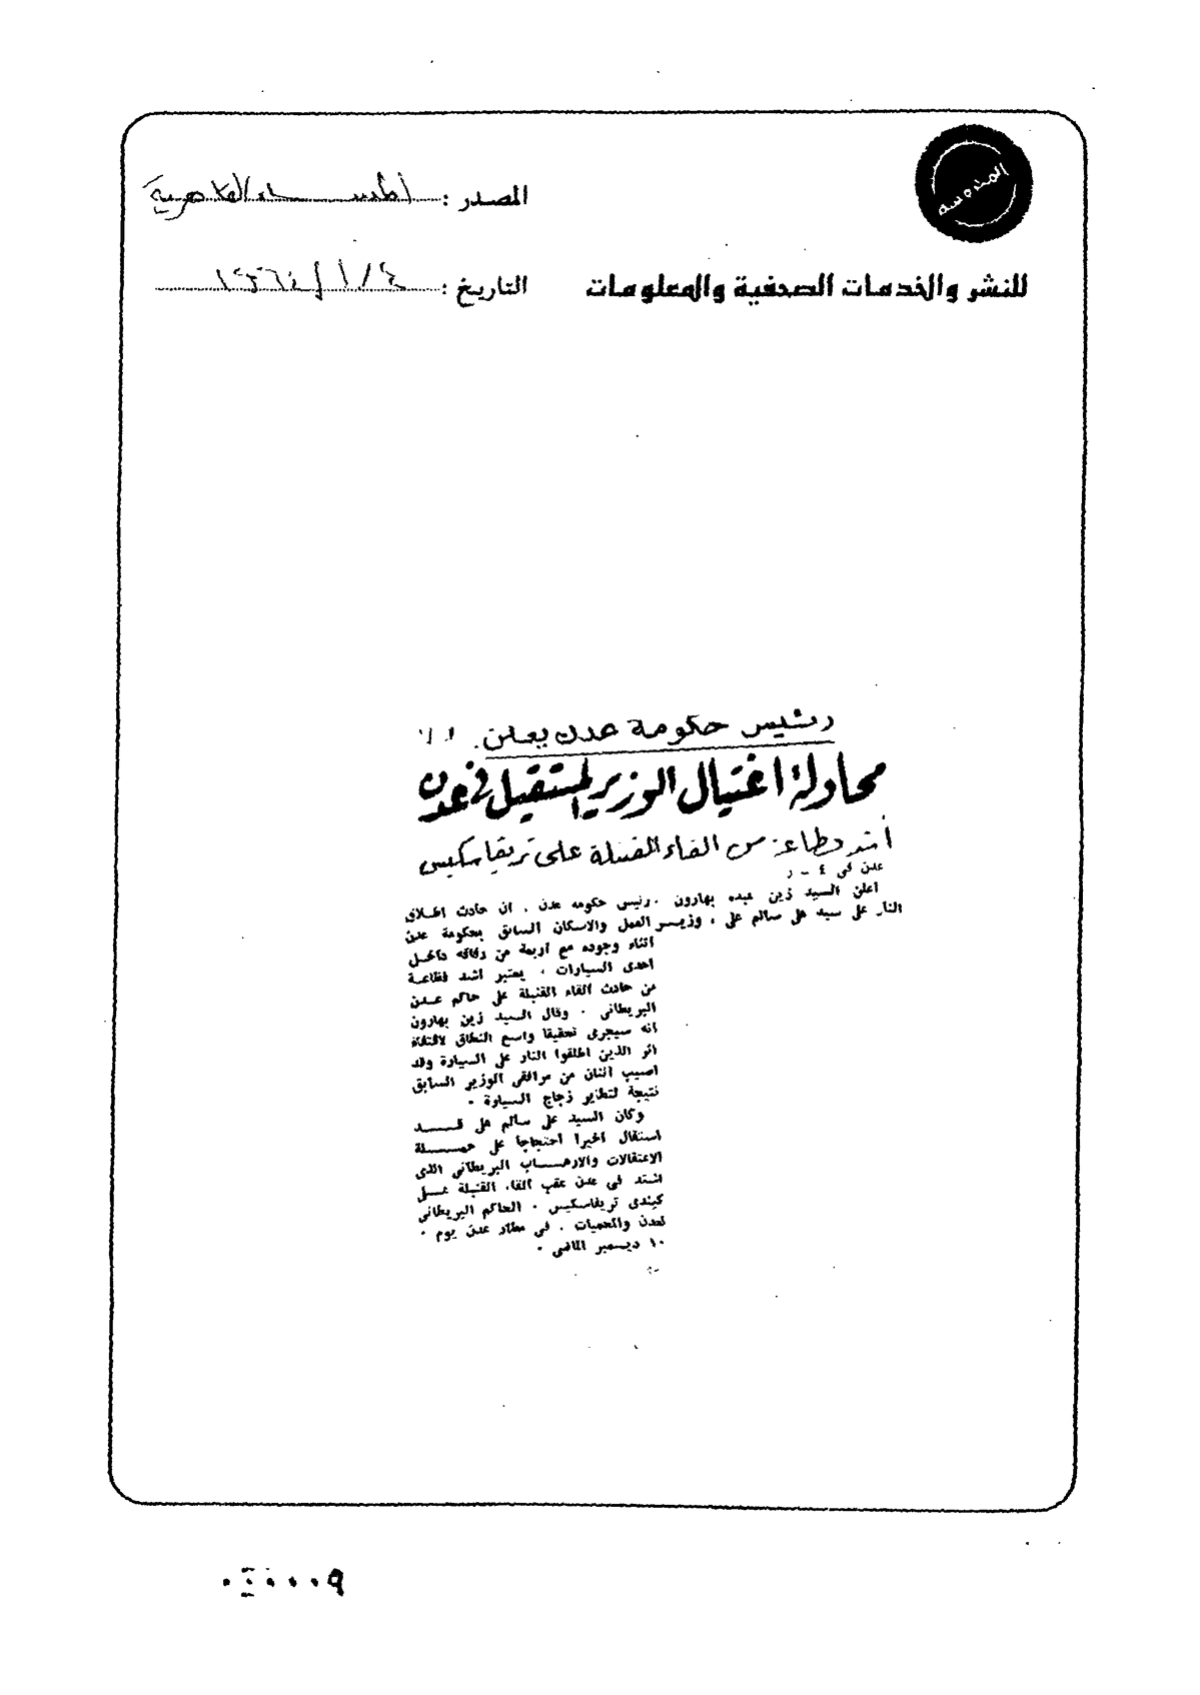 المحروسة
المصدر : المساء القاهرية
للنشر والخدمات الصحفية والمعلومات
التاريخ : ١٩٦٤/١/٤
رئيس حكومة عدن يعلن
محاولة اغتيال الوزير المستقيل في عدن
أشد فظاعة من القاء القنبلة على تريفاسكيس
عدن في ٤ - ر
اعلن السيد زين عبده بهارون . رئيس حكومه عدن . ان حادث اطلاق
النار على سيد على سالم على ، وزيــر العمل والاسكان السابق بحكومة عدن
اثناء وجوده مع اربعة من رفاقه داخــل
احدى السيارات ، يعتبر اشد فظاعة
من حادث القاء القنبلة على حاكم عــدن
البريطانى . وقال السيد زين بهارون
انه سيجرى تحقيقا واسع النطاق لاقتفاء
اثر الذين اطلقوا النار على السيارة وقد
اصيب اثنان من مرافقى الوزير السابق
نتيجة لتطاير زجاج السيارة .
وكان السيد على سالم على قــــد
استقال اخيرا احتجاجا على حمـــلة
الاعتقالات والارهــاب البريطانى الذى
اشتد فى عدن عقب القاء القنبلة عــلى
كيندى تريفاسكيس . الحاكم البريطانى
لعدن والمحميات . فى مطار عدن يوم .
١٠ ديسمبر الماضى .